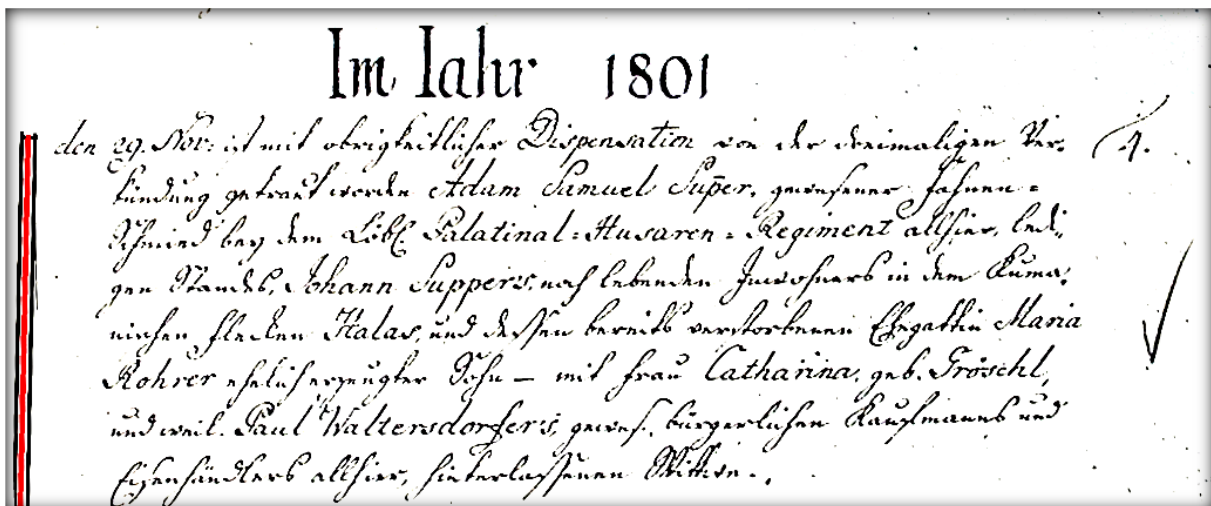 Im Jahr 1801
den 29. Nov: ist mit obrigkeitlicher Dispensation von der dreimaligen Ver-
kündung getraut worden Adam Samuel Super, gewesener Fahnen=
Schmied bey dem Löbl. Palatinal=Husaren=Regiment allhier, ledi-
gen Standes, Johann Suppers, noch lebenden Inwohners in dem Kuma-
nischen Flecken Halas, und dessen bereits verstorbenen Ehegattin Maria
Rohrer ehelich erzeugter Sohn – mit Frau Catharina, geb. Fröschl,
und weil. Paul Waltersdorfers, gewes. bürgerlichen Kaufmanns und
Eisenhändlers allhier, hinterlassenen Wittwe.
4.